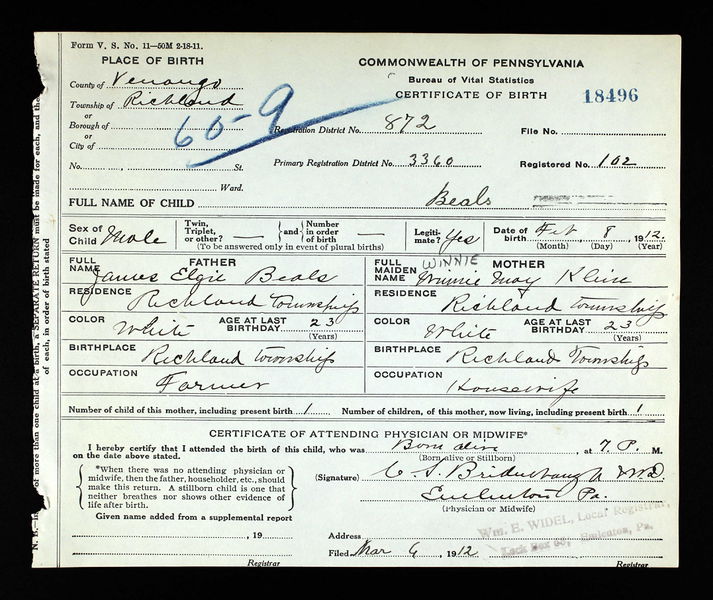 Form V. S. No. 11—50M 2-18-11.
PLACE OF BIRTH
County of Venango
Township of Richland
or
Borough of
or
City of
No. , St.
Ward.
60-9
COMMONWEALTH OF PENNSYLVANIA
Bureau of Vital Statistics
CERTIFICATE OF BIRTH
18496
Registration District No. 872
File No.
Primary Registration District No. 3360
Registered No. 102
FULL NAME OF CHILD Beals
Sex of Child Male
Twin, Triplet, or other? — and Number in order of birth
(To be answered only in event of plural births)
Legitimate? Yes
Date of birth Feb 8 1912.
(Month) (Day) (Year)
FATHER
FULL NAME James Elgie Beals
RESIDENCE Richland Township
COLOR White
AGE AT LAST BIRTHDAY 23
(Years)
BIRTHPLACE Richland Township
OCCUPATION Farmer
MOTHER
WINNIE
FULL MAIDEN NAME Winnie May Kline
RESIDENCE Richland Township
COLOR White
AGE AT LAST BIRTHDAY 23
(Years)
BIRTHPLACE Richland Township
OCCUPATION Housewife
Number of child of this mother, including present birth 1
Number of children, of this mother, now living, including present birth 1
CERTIFICATE OF ATTENDING PHYSICIAN OR MIDWIFE*
I hereby certify that I attended the birth of this child, who was Born alive, at 7 P. M.
on the date above stated. (Born alive or Stillborn)
*When there was no attending physician or
midwife, then the father, householder, etc., should
make this return. A stillborn child is one that
neither breathes nor shows other evidence of
life after birth.
(Signature)
Emlenton Pa.
(Physician or Midwife)
Given name added from a supplemental report
, 19
Registrar
Address
Wm. E. WIDEL, Local Registrar,
Lock Box 63, Emlenton, Pa.
Filed Mar 6, 1912
Registrar
of more than one child at a birth, a SEPARATE RETURN must be made for each, and the
of each, in order of birth stated